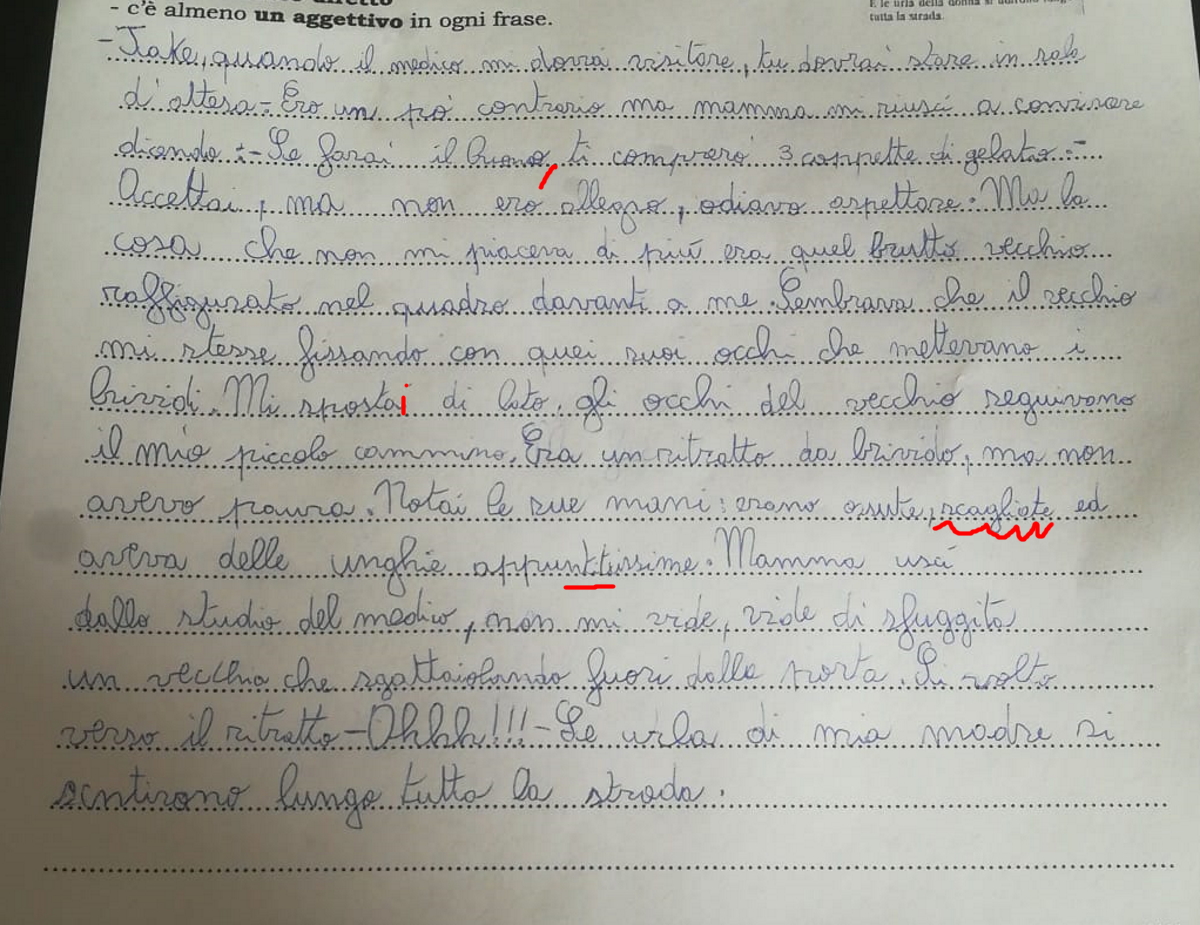 - c'è almeno un aggettivo in ogni frase.
E le urla della donna si
tutta la strada.
-Jake, quando il medico mi dovrà visitare, tu dovrai stare in sala
d'attesa-Ero un pò contrario ma mamma mi riuscì a convincere
dicendo :-Se farai il buono, ti comprerò 3 coppette di gelato-
Accettai, ma non ero allegro, odiavo aspettare. Ma la
cosa che non mi piaceva di più era quel brutto vecchio
raffigurato nel quadro davanti a me. Sembrava che il vecchio
mi stesse fissando con quei suoi occhi che mettevano i
brividi. Mi spostai di lato, gli occhi del vecchio seguivano
il mio piccolo cammino. Era un ritratto da brivido, ma non
avevo paura. Notai le sue mani: erano ossute, scagliate ed
aveva delle unghie appunttissime. Mamma uscì
dallo studio del medico, non mi vide, vide di sfuggita
un vecchio che sgattaiolando fuori dalla porta. Si voltò
verso il ritratto-Ohhh!!!-Le urla di mia madre si
sentirono lungo tutta la strada.